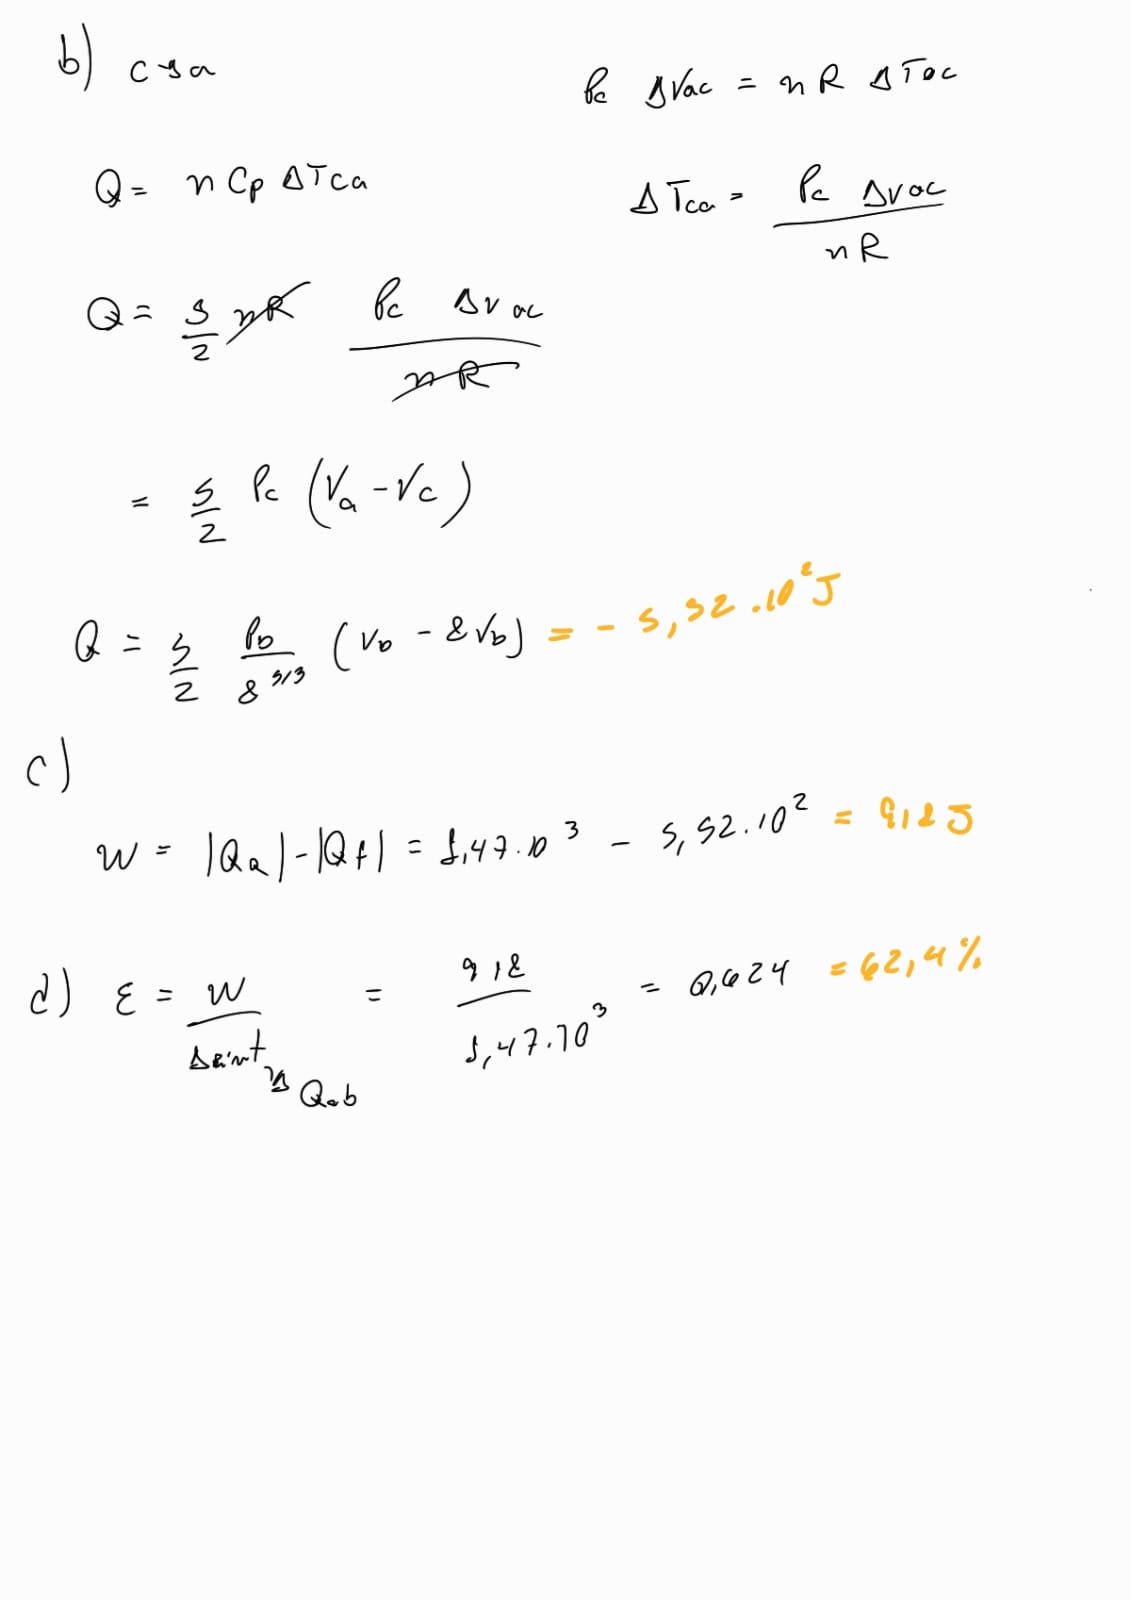 b) c→a
Pc ΔVac = n R ΔTac
Q = n Cp ΔTca
ΔTca = Pc ΔVac / nR
Q = 5/2 nR Pc ΔVac / nR
= 5/2 Pc (Va - Vc)
Q = 5/2 Pb / 8^5/3 (Vb - 8Vb) = - 5,52.10² J
c)
W = |Qa| - |Qf| = 1,47.10³ - 5,52.10² = 918 J
d) ε = W / = 918 / 1,47.10³ = 0,624 = 62,4%
Qab